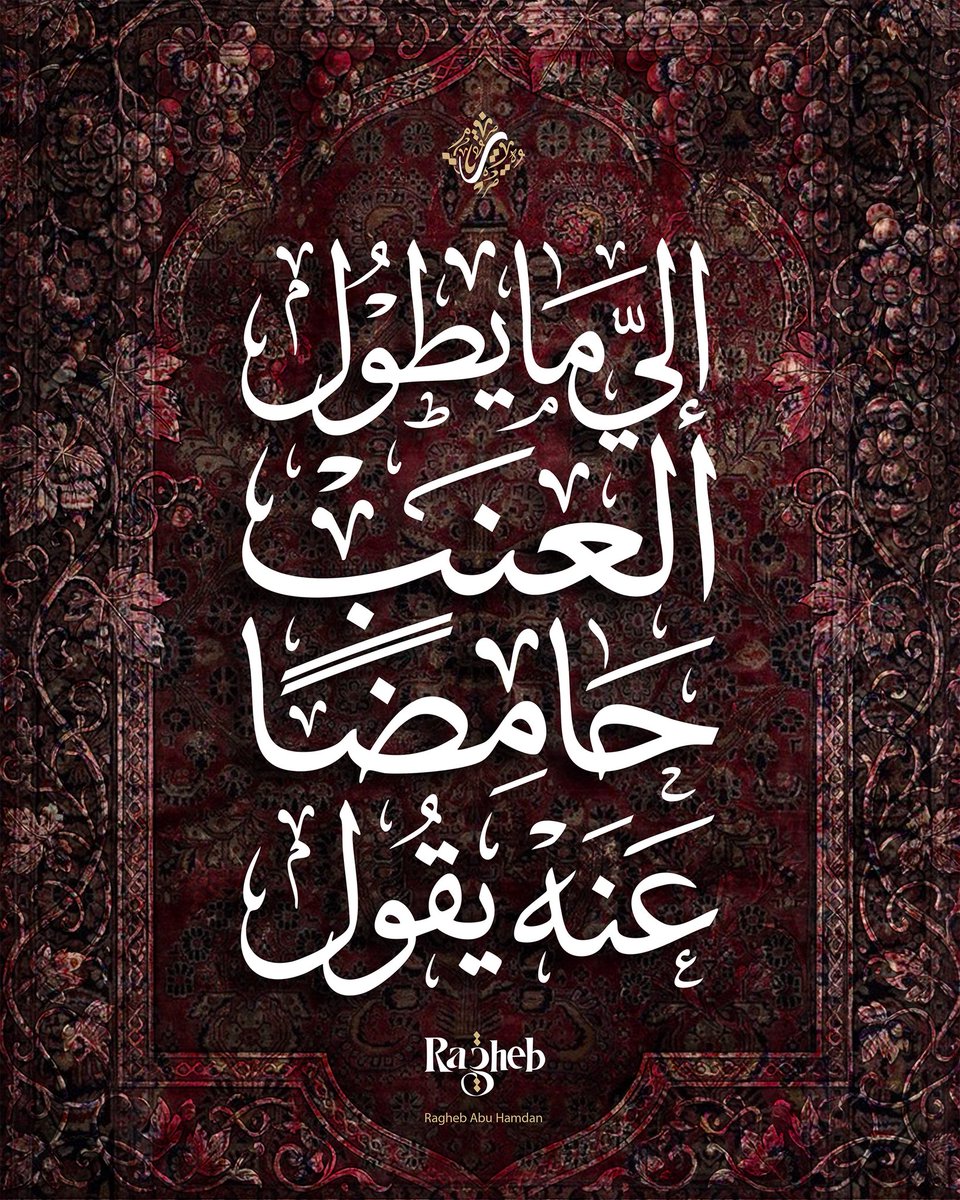 إليَّ مَا يطوُل
ألعنَبْ
حَامِضًا
عَنَهْ يقُول
Ragheb
Ragheb Abu Hamdan